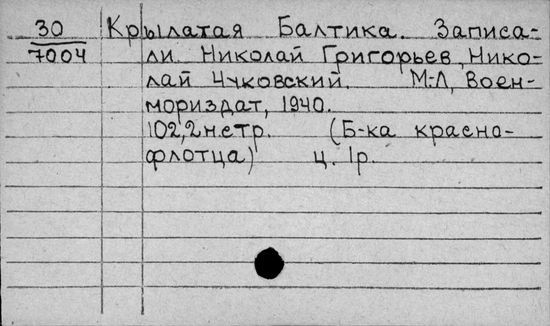 30 Крылатая Балтика. Записа-
7004 ли Николай Григорьев, Нико-
лай Чуковский. М.-Л, Воен-
мориздат, 1940.
102,2нстр. (Б-ка красно-
флотца) ц. 1р.